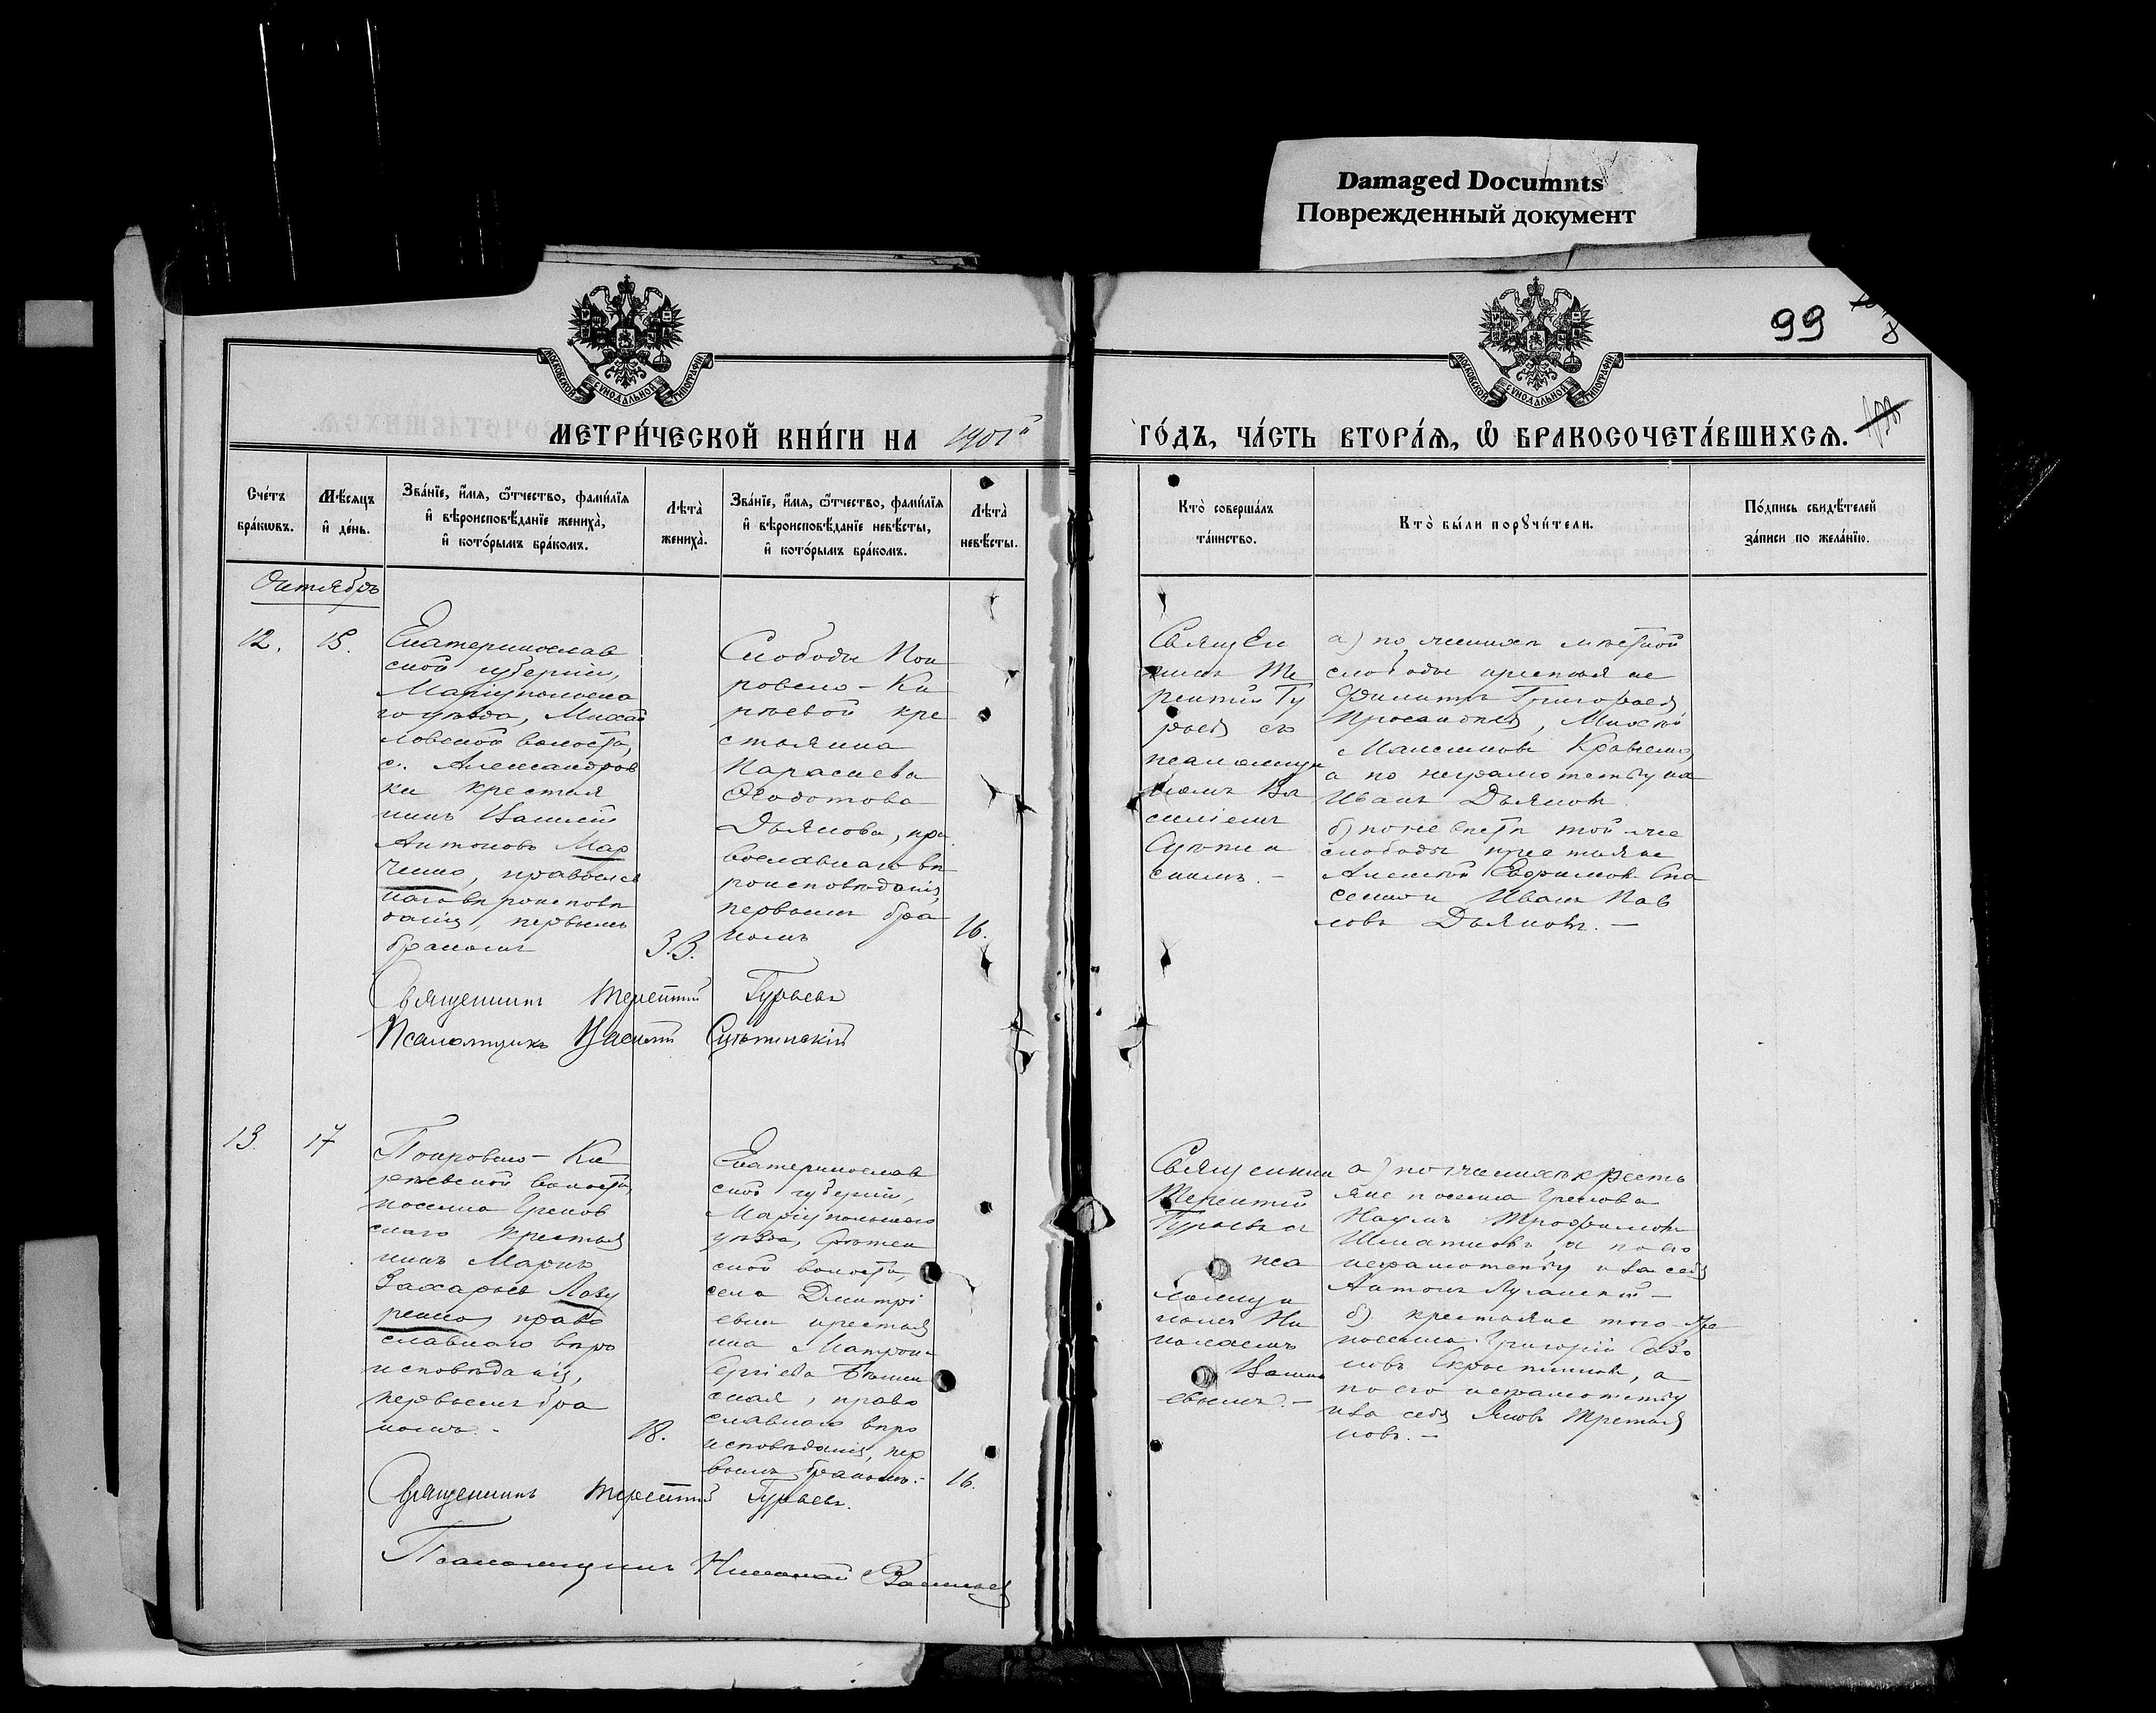 Damaged Documnts
Поврежденный документ
99
МОСКОВСКОЙ СѴНОДАЛЬНОЙ ТИПОГРАФІИ
МОСКОВСКОЙ СѴНОДАЛЬНОЙ ТИПОГРАФІИ
МЕТРИ́ЧЕСКОЙ КНИ́ГИ НА 1901й
ГО́ДЪ, ЧА́СТЬ ВТОРА́Я, Ѡ҆ БРАКОСОЧЕТА́ВШИХСЯ.
Сче́тъ бра́кѡвъ.
Мѣ́сяцъ и҆ де́нь.
Зва́нїе, и҆́мя, ѻ҆́тчество, фами́лїя и҆ вѣроисповѣ́данїе жениха̀, и҆ кото́рымъ бра́комъ.
Лѣ́та̀ жениха̀.
Зва́нїе, и҆́мя, ѻ҆́тчество, фами́лїя и҆ вѣроисповѣ́данїе невѣ́сты, и҆ кото́рымъ бра́комъ.
Лѣ́та̀ невѣ́сты.
Кто̀ соверша́лъ та́инство.
Кто̀ бы́ли порꙋчи́тели.
По́дпись свидѣ́телей за́писи по жела́нїю.
Октябрь
12.
15.
Екатеринослав
ской губерніи,
Маріупольска
го уѣзда, Михай
ловской волости,
с. Александров
ки крестья
нинъ Василій
Антоновъ Мар
ченко, православ
наго вѣроисповѣ
данія, первымъ
бракомъ
33.
Слободы Пок
ровско-Ки
рѣевой кре
стьянка
Параскева
Ѳеодотова
Дьякова, пра
вославнаго вѣ
роисповѣданія,
первымъ бра
комъ
16.
Священ
никъ Те
рентій Гу
рьевъ съ
псаломщи
комъ Ва
силіемъ
Сухтин
скимъ. -
а) по женихѣ мѣстной
слободы крестьяне
Филиппъ Григорьевъ
Михаи
Максимовъ Кравченко,
а по неграмотству их
Иванъ Дьяковъ.
б) по невѣстѣ той же
слободы крестьяне
Алексѣй Ефимовъ
Иванъ Пав
ловъ Дьяковъ. -
Священникъ Терентій Гурьевъ
Псаломщикъ Василій
13.
17
Покровско-Ки
рѣевской волости,
поселка Греков
скаго крестья
нинъ Маркъ
Захарьев Лазу
ренко, право
славнаго вѣро
исповѣданія,
первымъ бра
комъ. -
18.
Екатеринослав
ской губерніи,
Маріупольскаго
уѣзда,
ской волости,
села Дмитрі
евки крестьян
ка Матрона
Сергіева
ская, право
славнаго вѣро
исповѣданія, пер
вымъ бракомъ. -
16.
Священник
Терентій
Гурьевъ съ
пса
ломщи
комъ Ни
колаемъ
Василь
евымъ. -
а) по женихѣ кресть
яне поселка Грекова
Наумъ Трофимовъ
Шматковъ, а по его
неграмотству и за себя
Антонъ Луганскій -
б) крестьяне того же
поселка Григорій Сазо
новъ а
по его неграмотству
и за себя Яковъ Третья
ковъ. -
Священникъ Терентій Гурьевъ.
Псаломщикъ Николай Васильевъ